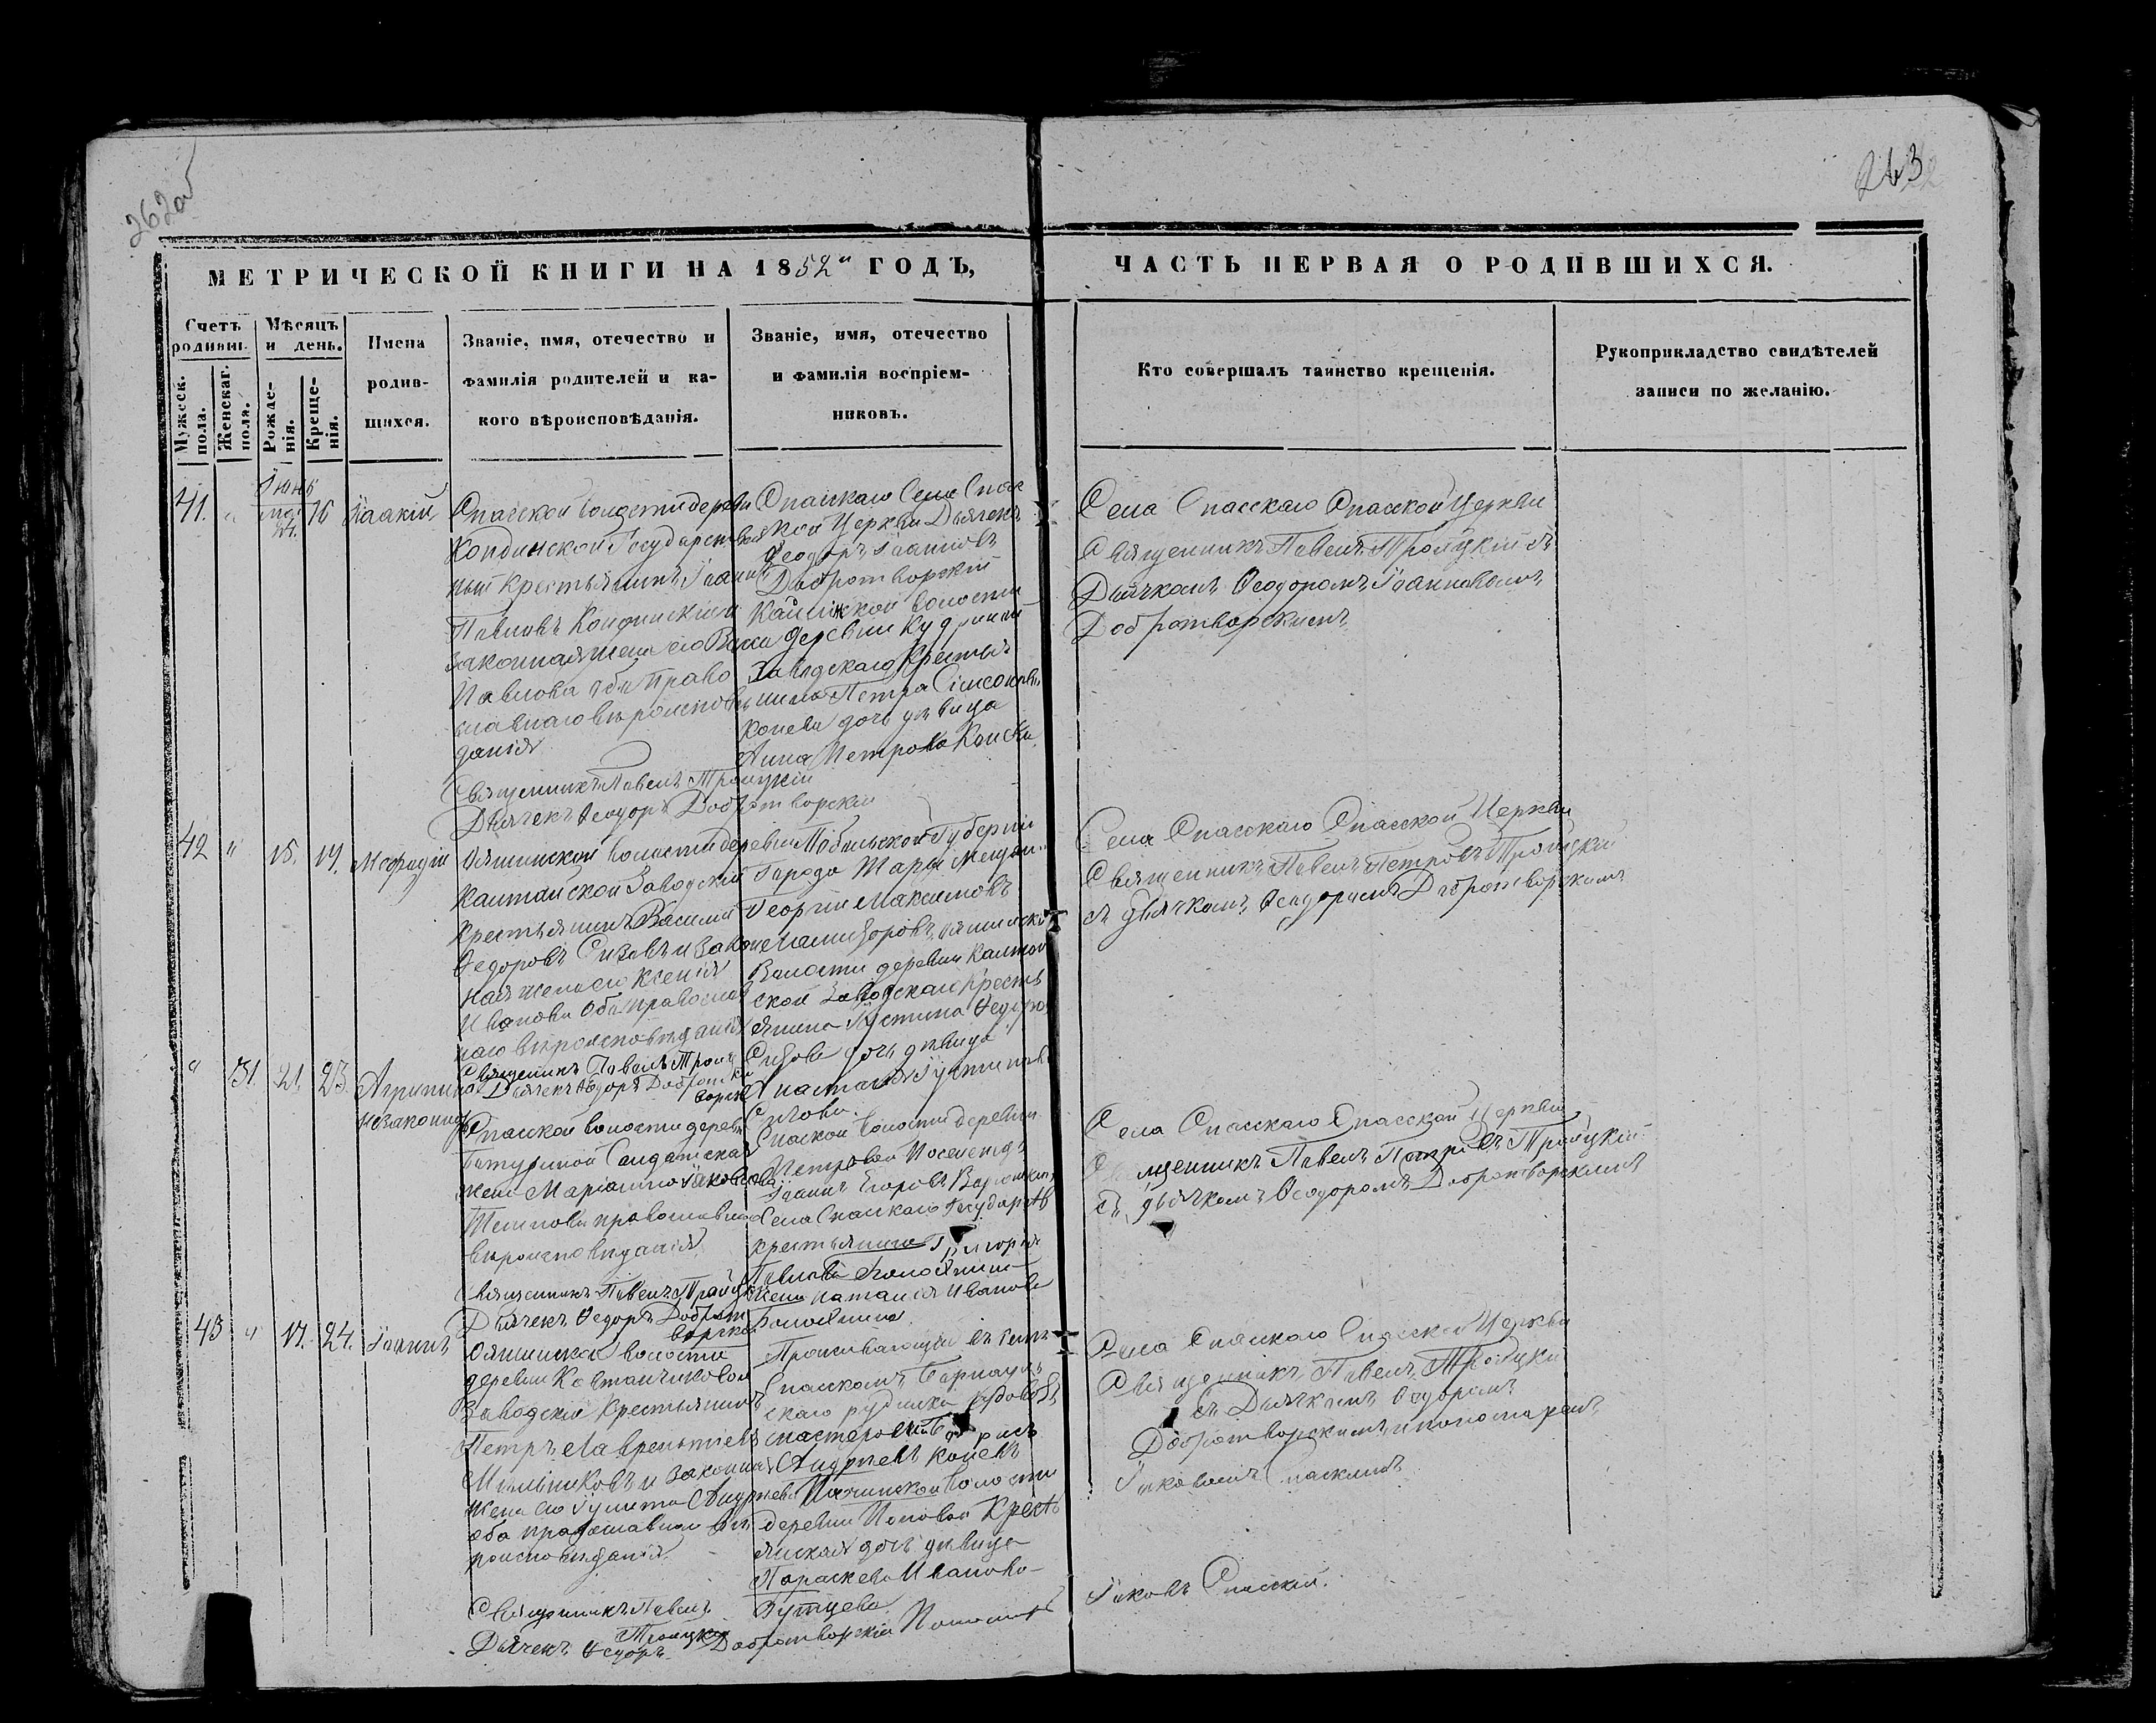 262об
263
МЕТРИЧЕСКОЙ КНИГИ НА 1852й ГОДЪ,
ЧАСТЬ ПЕРВАЯ О РОДИВШИХСЯ.
Счетъ родивш.
Мужеск. пола.
Женскаг. пола.
Мѣсяцъ и день.
Рожде-
нія.
Креще-
нія.
Имена
родив-
шихся.
Званіе, имя, отечество и
фамилія родителей и ка-
кого вѣроисповѣданія.
Званіе, имя, отечество
и фамилія воспріем-
никовъ.
Кто совершалъ таинство крещенія.
Рукоприкладство свидѣтелей
записи по желанію.
41.
Іюнь
маі
24.
16
Іоакій
Спасской волости деревни
Кондинской Государствен
ный крестьянинъ Іоаннъ
Павловъ Кондинскій и
законная жена его
Павлова оба право
славнаго вѣроисповѣ
данія
Священникъ Павелъ Троицкій
Дьячекъ Ѳеодоръ Доброт ворскій
Спасскаго Села Спас
ской Церкви Дьячекъ
Ѳеодоръ Іоанновъ
Добротворскій
волости
деревни Кудриной
Заводскаго крестья
нина Петра Симеонова
Конева дочь дѣвица
Анна Петрова Конева
Села Спасскаго Спасской Церкви
Священникъ Павелъ Троицкій съ
Дьячкомъ Ѳеодоромъ Іоанновымъ
Добротворскимъ
42
"
15.
17.
Меѳодій
Ояшинской волости деревни
Каитайской Заводскій
крестьянинъ Василій
Ѳедоровъ Сизовъ и закон
ная жена его Ксенія
Иванова Оба православ
наго вѣроисповѣданія
Священникъ Павелъ Троиц
Дьячекъ Ѳеодоръ Добротво
ворскій
Тобольской Губерніи
Города Тары Мещан.
Георгій Максимовъ
Волости деревни
ской Заводскаго Кресть
янина Іустина Ѳедоро
Сизова дочь дѣвица
Анастасія Іустинова
Сизова.
Села Спасскаго Спасской Церкви
Священникъ Павелъ Петровъ Троицкій
съ дьячкомъ Ѳеодоромъ Добротворскимъ
"
31.
21.
23.
Агрипина
незаконнор
Спасской волости деревни
Батуриной Солдатская
жена Маріанна Іаковлева
православнаго
вѣроисповѣданія
Священникъ Павелъ Троицкій
Дьячекъ Ѳедоръ Доброт
ворскій
Спаской волости деревни
Петровой Поселенецъ
Іоаннъ Егоровъ
Села Спаскаго Государств
крестьянина Григорія
Павлова
жена Наталія Иванова
Села Спасскаго Спасской Церкви
Священникъ Павелъ Петровъ Троицкій
съ дьячкомъ Ѳеодоромъ Добротворскимъ
43
"
17.
24.
Іоаннъ
Ояшинской волости
деревни
Заводскій Крестьянинъ
Петръ Лаврентіевъ
Мельниковъ и законная
жена его Іулита Андреева
оба православнаго вѣ
роисповѣданія.
Священникъ Павелъ
Троицкій
Дьячекъ Ѳедоръ Добротворскій Пономарь
Проживающій въ селѣ
Спасскомъ Барнауль
скаго рудника
мастеровый Борисъ
Андреевъ Коневъ
волости
деревни Поповой Кресть
янская дочь дѣвица
Параскева Иванова
Села Спаскаго Спасской Церкви
Священникъ Павелъ Троицкій
съ Дьячкомъ Ѳедоромъ
Добротворскимъ и пономаремъ
Іаковомъ Спаскимъ
Іаковъ Спасскій.